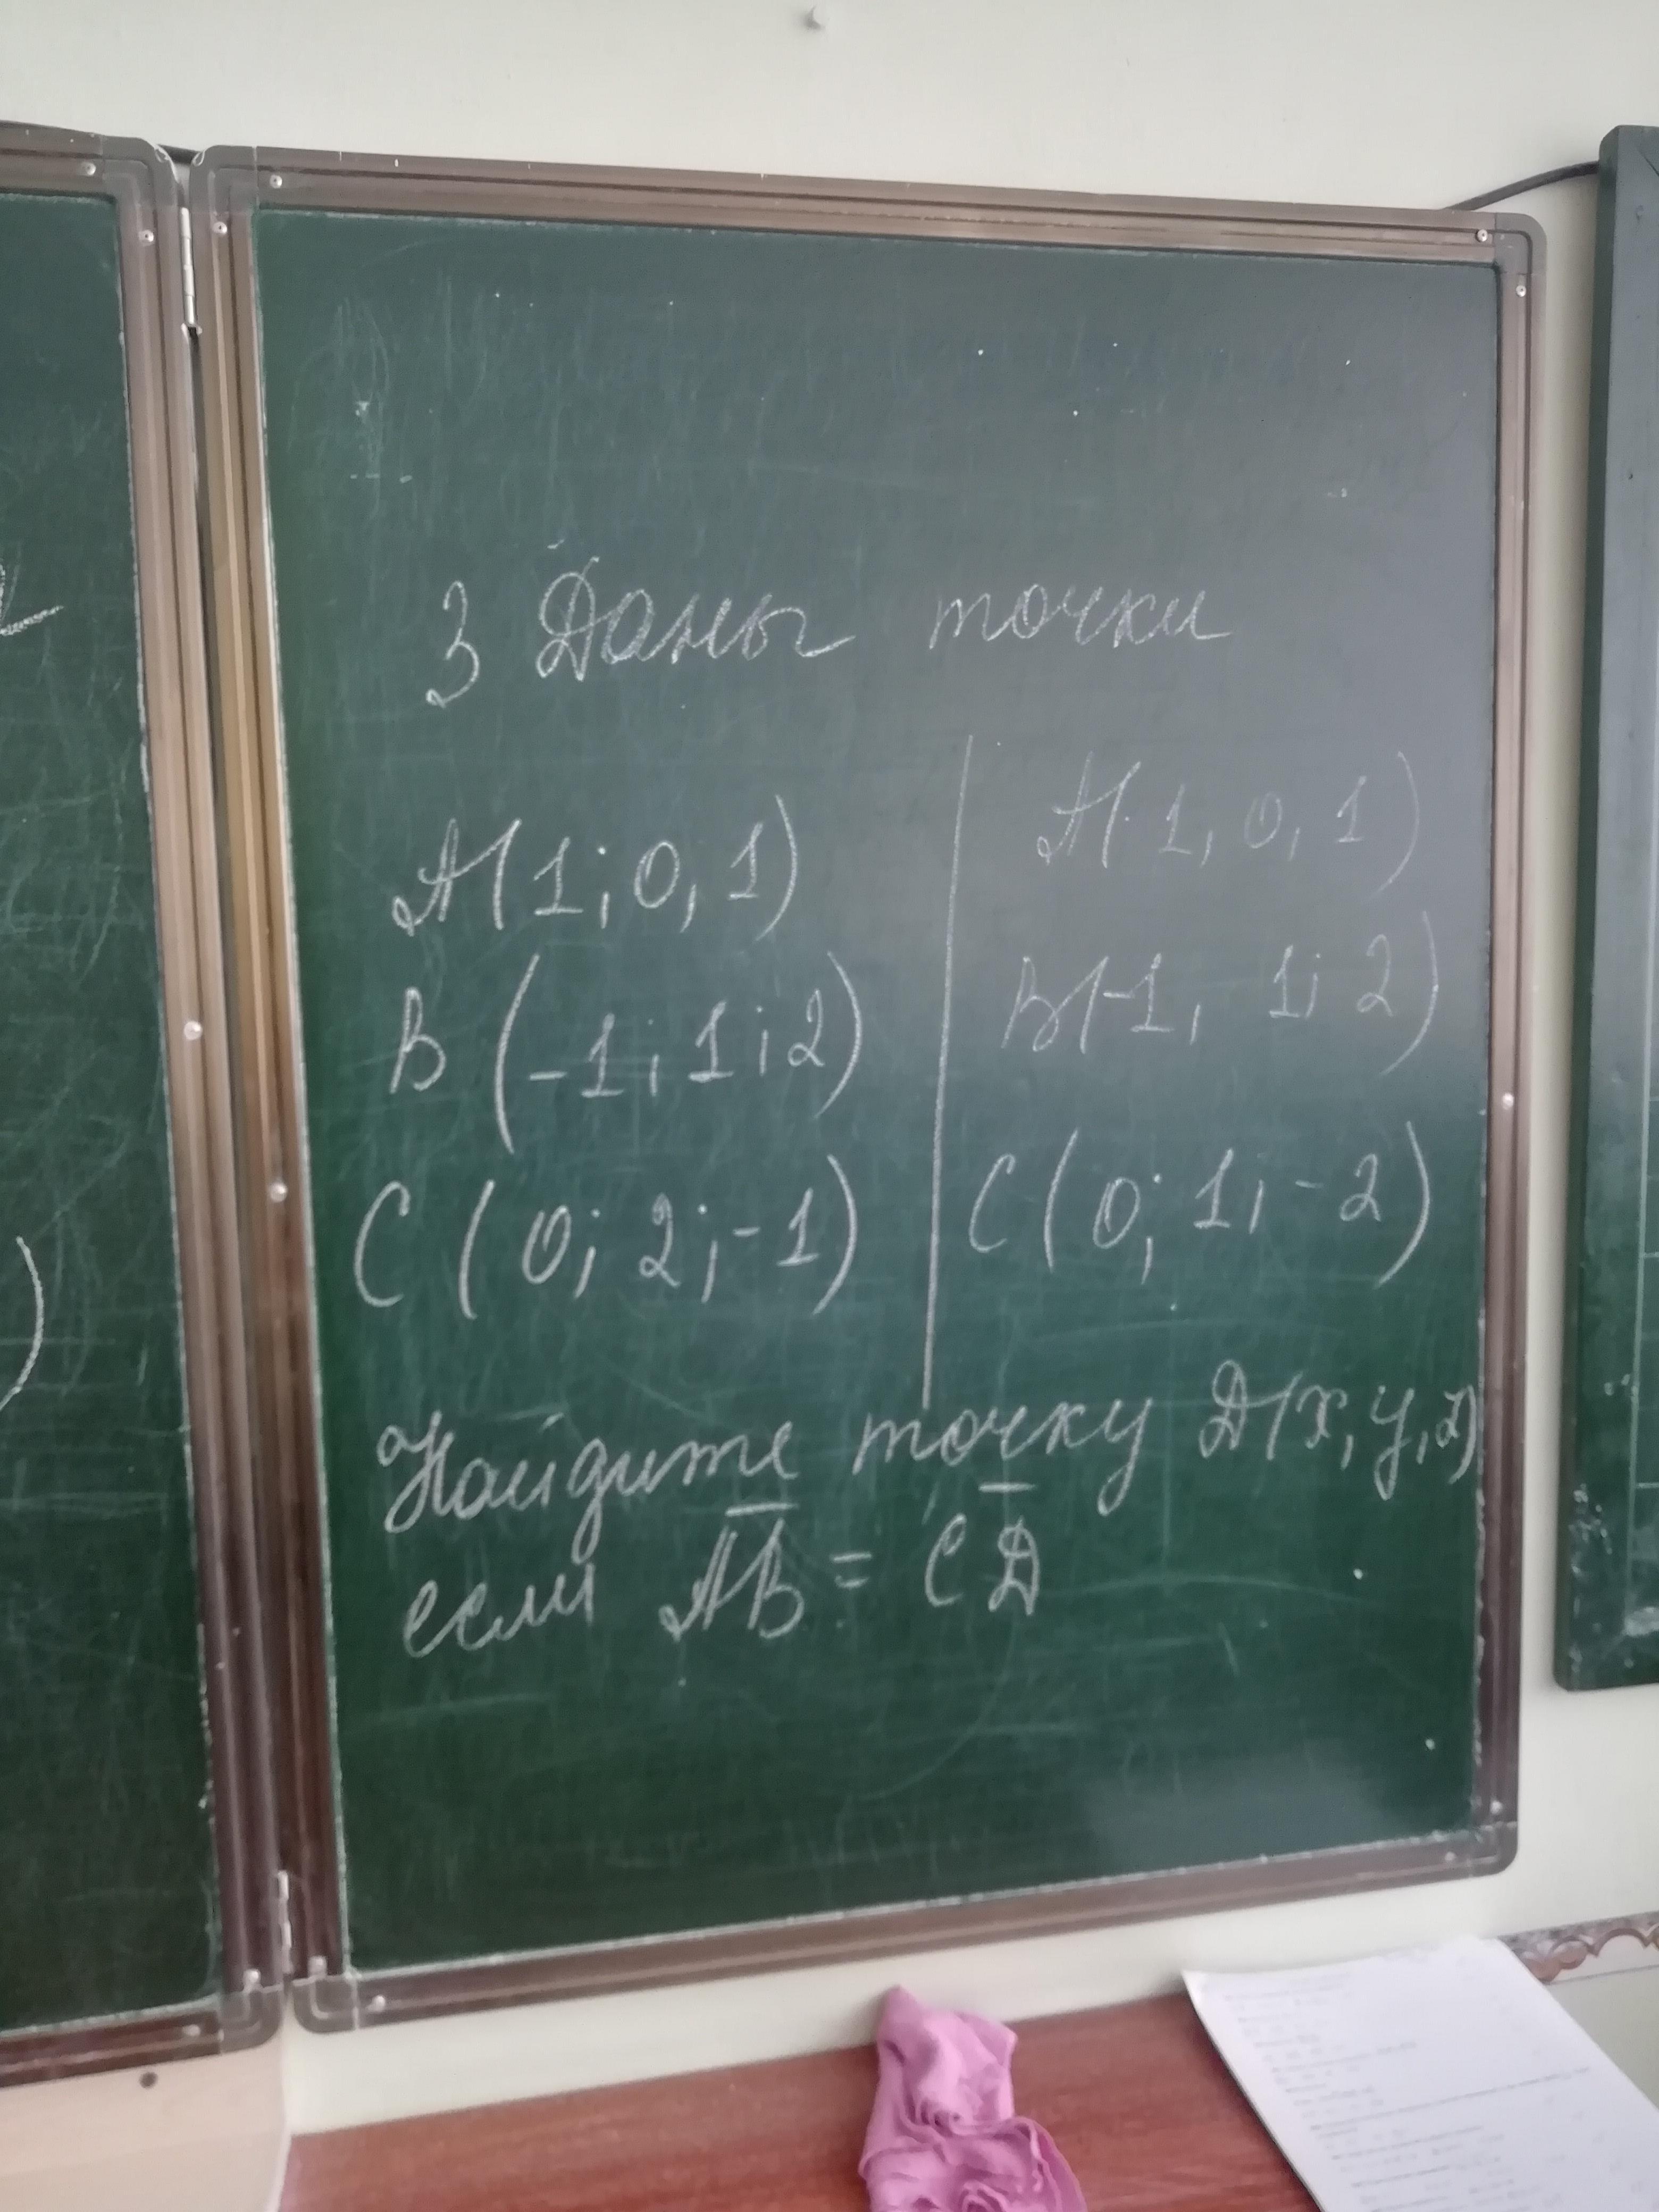 3 Даны точки
A(1; 0, 1)
B (-1; 1; 2)
C ( 0; 2; -1)
A( 1, 0, 1)
B(-1, 1; 2)
C ( 0; 1, -2)
Найдите точку D(x, y, z)
если AB = CD